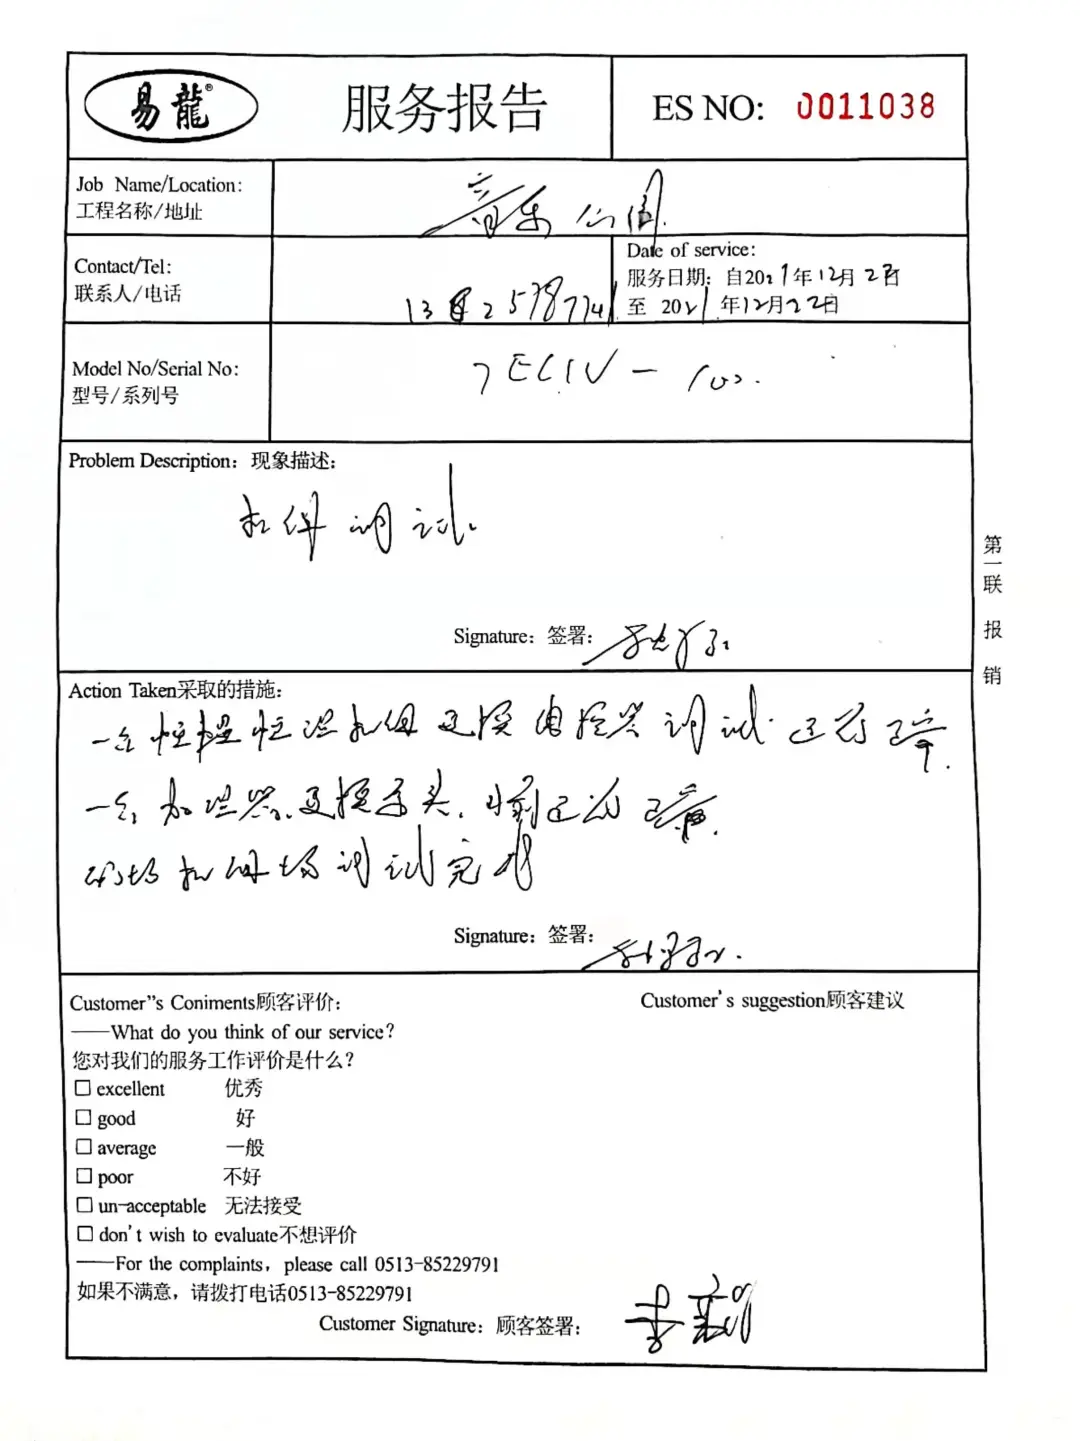 易龍®
服务报告
ES NO: 0011038
Job Name/Location:
工程名称/地址
音乐公园
Contact/Tel:
联系人/电话
Date of service:
服务日期: 自2021年12月22日
至 2021年12月22日
Model No/Serial No:
型号/系列号
Problem Description: 现象描述:
机组调试
Signature: 签署:
Action Taken采取的措施:
一台恒湿机组更换 调试 运行正常.
一台加湿器更换 头. 目前运行正常.
调试完毕
Signature: 签署:
Customer"s Coniments顾客评价:
Customer's suggestion顾客建议
——What do you think of our service?
您对我们的服务工作评价是什么?
□ excellent 优秀
□ good 好
□ average 一般
□ poor 不好
□ un-acceptable 无法接受
□ don't wish to evaluate不想评价
——For the complaints, please call 0513-85229791
如果不满意, 请拨打电话0513-85229791
Customer Signature: 顾客签署:
第一联 报销